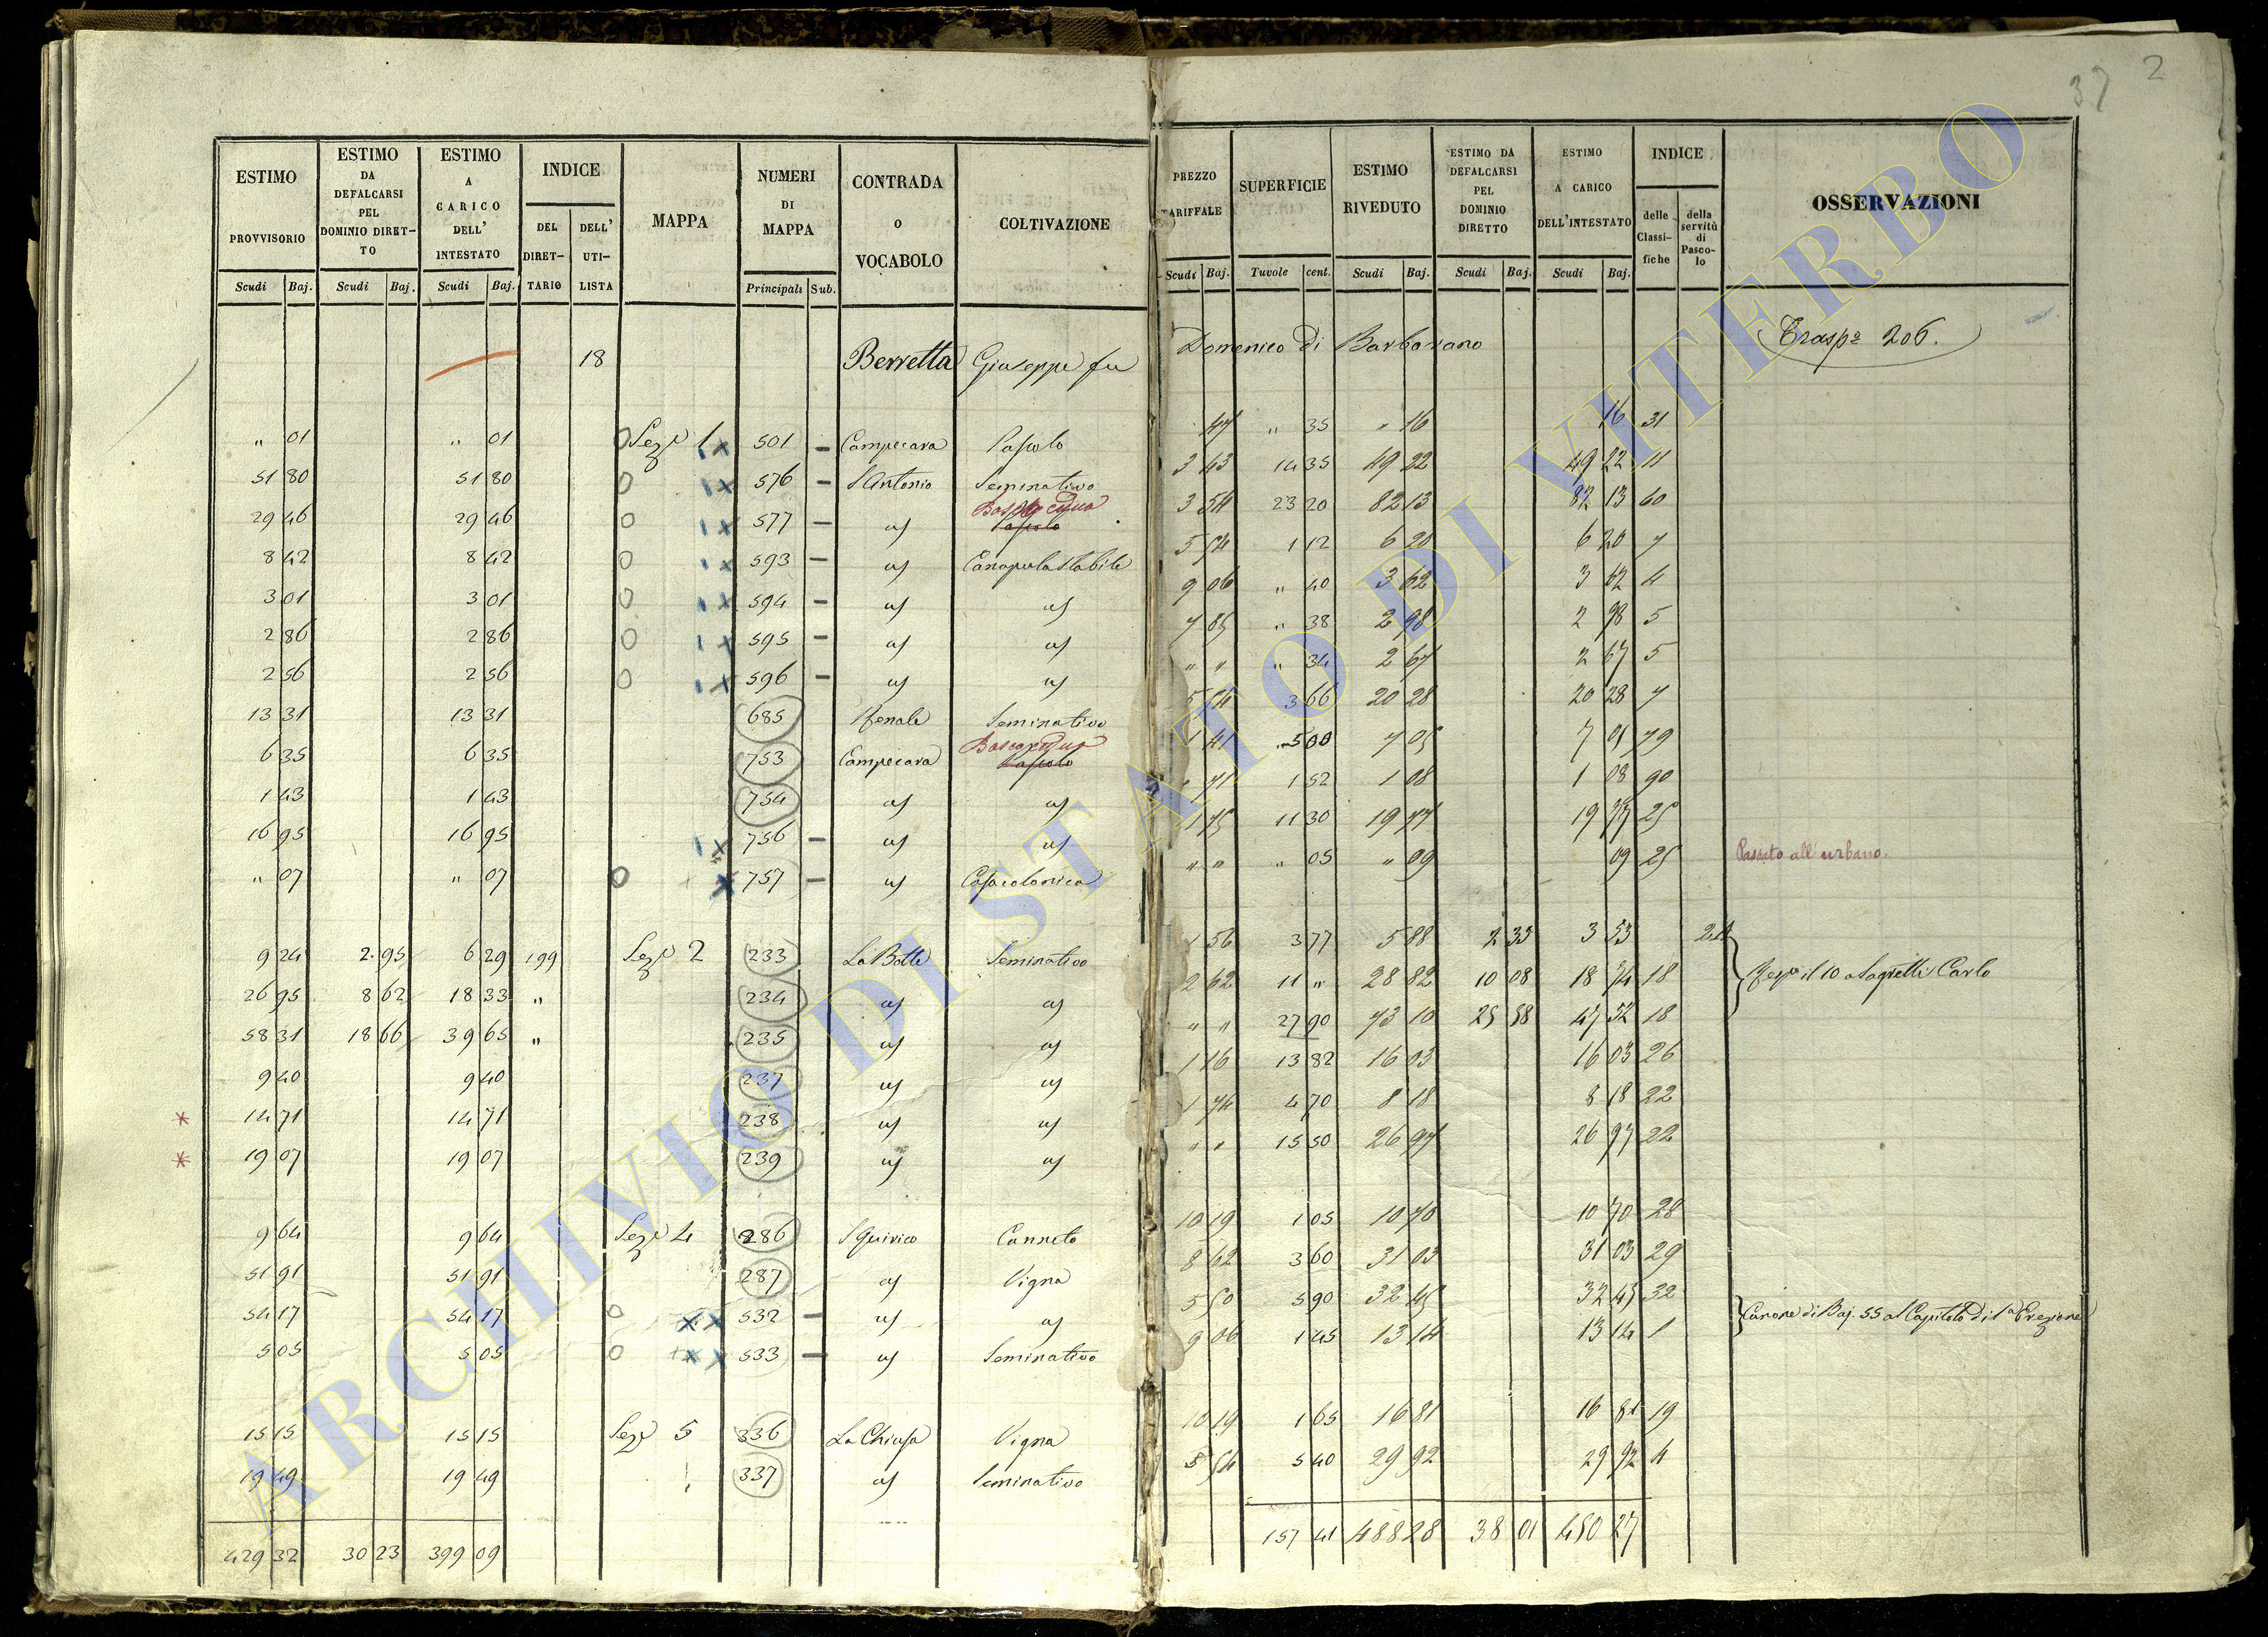 37 2
ESTIMO PROVVISORIO | ESTIMO DA DEFALCARSI PEL DOMINIO DIRET-TO | ESTIMO A CARICO DELL' INTESTATO | INDICE | MAPPA | NUMERI DI MAPPA | CONTRADA o VOCABOLO | COLTIVAZIONE | PREZZO TARIFFALE | SUPERFICIE | ESTIMO RIVEDUTO | ESTIMO DA DEFALCARSI PEL DOMINIO DIRETTO | ESTIMO A CARICO DELL'INTESTATO | INDICE | OSSERVAZIONI
Scudi Baj. | Scudi Baj. | Scudi Baj. | DEL DIRET-TARIO | DELL' UTI-LISTA | Principali Sub. | Scudi Baj. | Tavole cent. | Scudi Baj. | Scudi Baj. | Scudi Baj. | delle Classi-fiche | della servitù di Pasco-lo
18 Berretta Giuseppe fu Domenico di Barbarano Trasp. 206.
" 01 " 01 Sez. 1 501 - Campecava Pascolo 47 " 35 " 16 16 31
51 80 51 80 576 - S Antonio Seminativo 3 43 14 35 49 22 49 22 11
29 46 29 46 577 - as Bosco ceduo Pascolo 3 54 23 20 82 13 82 13 60
8 42 8 42 593 - as Canapula Stabile 5 54 1 12 6 20 6 20 7
3 01 3 01 594 - as as 9 06 " 40 3 62 3 62 4
2 86 2 86 595 - as as 7 85 " 38 2 98 2 98 5
2 56 2 56 596 - as as " " " 34 2 67 2 67 5
13 31 13 31 685 Renale Seminativo 5 54 3 66 20 28 20 28 7
6 35 6 35 753 Campecava Bosco ceduo Pascolo 1 41 5 00 7 05 7 05 79
1 43 1 43 754 as as " 71 1 52 1 08 1 08 90
16 95 16 95 756 - as as 1 75 11 30 19 77 19 77 25
" 07 " 07 757 - as Casa colonica " " " 05 " 09 09 25 Passato all'urbano.
9 24 2 95 6 29 199 Sez. 2 233 La Botte Seminativo 1 56 3 77 5 88 2 35 3 53
26 95 8 62 18 33 " 234 as as 2 62 11 " 28 82 10 08 18 74 18 Carlo
58 31 18 66 39 65 " 235 as as " " 27 90 73 10 25 58 47 52 18
9 40 9 40 237 as as 1 16 13 82 16 03 16 03 26
* 14 71 14 71 238 as as 1 74 4 70 8 18 8 18 22
* 19 07 19 07 239 as as " " 15 50 26 97 26 97 22
9 64 9 64 Sez. 4 286 S Quirico Canneto 10 19 1 05 10 70 10 70 28
51 91 51 91 287 as Vigna 8 62 3 60 31 03 31 03 29
54 17 54 17 532 - as as 5 50 5 90 32 45 32 45 32 Canone di Baj. 55 al Capitolo di 1a Erezione
5 05 5 05 533 - as Seminativo 9 06 1 45 13 14 13 14 1
15 15 15 15 Sez. 5 336 La Chiusa Vigna 10 19 1 65 16 81 16 81 19
19 49 19 49 337 as Seminativo 5 54 5 40 29 92 29 92 4
429 32 30 23 399 09 157 41 488 28 38 01 450 27
ARCHIVIO DI STATO DI VITERBO